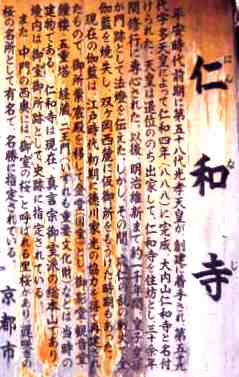 仁和寺
にんなじ
平安時代前期に第五十八代光孝天皇が創建に着手され、第五九
代宇多天皇によって仁和四年(八八八)に完成、大内山仁和寺と名付
けられた。天皇は退位ののち出家して、仁和寺を住坊とし三十余年
間修行に専念された。以後、明治維新まで約一千年間、皇子皇孫
が門跡として法燈を伝えた。しかし、その間、応仁の乱の戦火で全
伽藍を焼失し、双ヶ岡西麓に仮御所をもうけた時期もあった。
現在の伽藍は、江戸時代初期に徳川家光の協力を得て再建され
たもので、御所紫宸殿を移した金堂(国宝)、御影堂、観音堂、
鐘楼、五重塔、経蔵、二王門(いずれも重要文化財)などは当時の
建物である。仁和寺は現在、真言宗御室派の総本山であり、
境内は御室御所跡として史跡に指定されている。
また、中門の西奥には、「御室の桜」と呼ばれる里桜があり遅咲きの
桜の名所として有名で、名勝に指定されている。
京都市